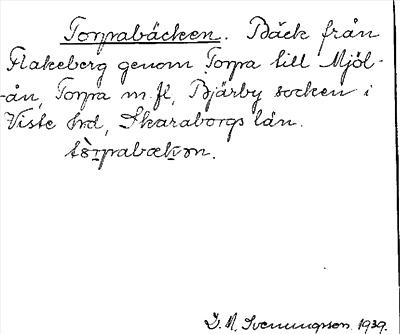 Torpabäcken. Bäck från
Flakeberg genom Torpa till Mjöl-
-ån, Torpa m.fl, Bjärby socken i
Viste hrd, Skaraborgs län.
D. M. Svenungsson 1939.